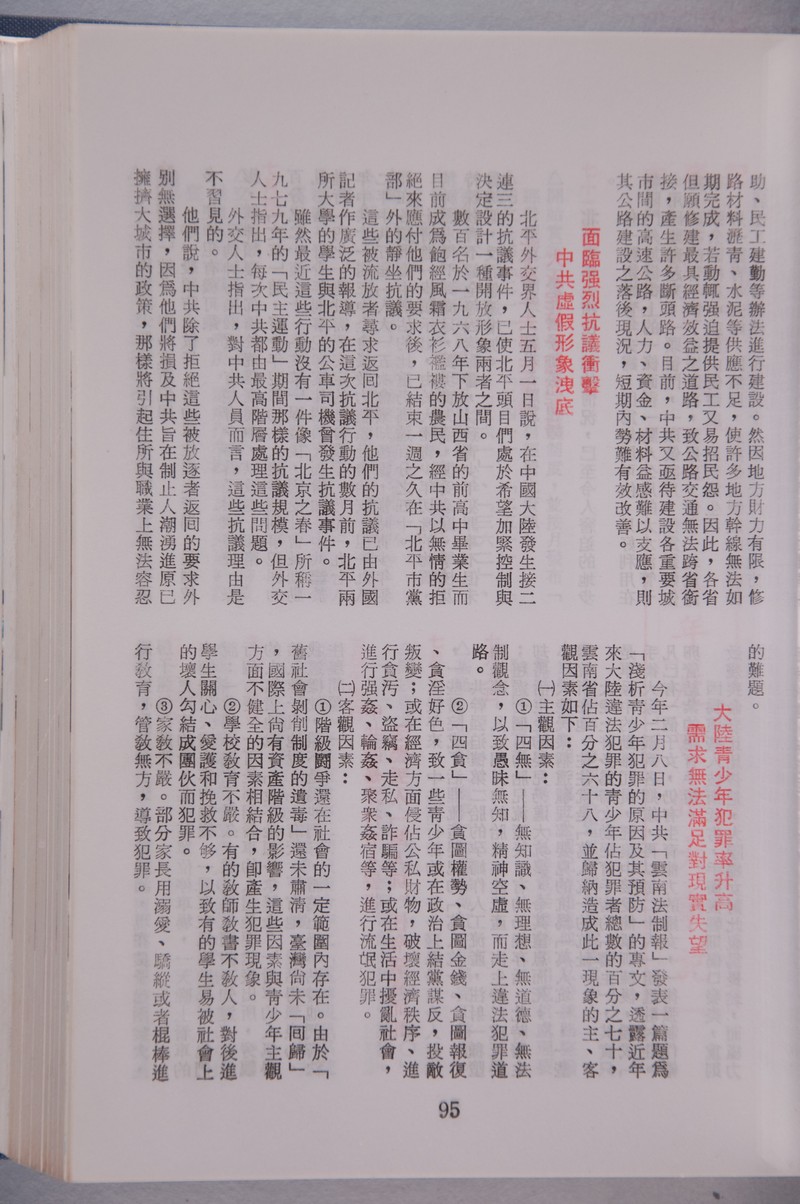 助、民工建勤等辦法進行建設。然因地方財力有限，修
路材料瀝青、水泥等供應不足，使許多地方幹線無法如
期完成，若動輒强迫提供民工又易招民怨。因此，各省
但願修建最具經濟效益之道路，致公路交通無法跨省銜
接，產生許多斷頭路。目前，中共又亟待建設各重要城
市間的高速公路，人力、資金、材料益感難以支應，則
其公路建設之落後現況，短期內勢難有效改善。
面臨强烈抗議衝擊
中共虛假形象洩底
北平外交界人士五月一日說，在中國大陸發生接二
連三的抗議事件，已使北平頭目們處於希望加緊控制與
決定設計一種開放形象兩者之間。
數百名於一九六八年下放山西省的前高中畢業生而
目前成爲飽經風霜衣衫襤褸的農民，經中共以無情的拒
絕來應付他們的要求後，已結束一週之久在「北平市黨
部」外的靜坐抗議。
這些被流放者尋求返回北平，他們的抗議已由外國
記者作廣泛的報導，在這次抗議行動的數月前，北平兩
所大學的學生與北平的公車司機曾發生抗議事件。
雖然最近這些行動沒有一件像「北京之春」所稱一
九七九年的「民主運動」期間那樣的抗議規模，但外交
人士指出，每次中共都由最高階層處理這些問題。
外交人士指出，對中共人員而言，這些抗議理由是
不習見的。
他們說，中共除了拒絕這些被放逐者返回的要求外
別無選擇，因爲他們將損及中共旨在制止人潮湧進原已
擁擠大城市的政策，那樣將引起住所與職業上無法容忍
的難題。
大陸青少年犯罪率升高
需求無法滿足對現實失望
今年二月八日，中共「雲南法制報」發表一篇題爲
「淺析青少年犯罪的原因及其預防」的專文，透露近年
來大陸違法犯罪的青少年佔犯罪者總數的百分之七十，
雲南省佔百分之六十八，並歸納造成此一現象的主、客
觀因素如下：
㈠主觀因素：
①「四無」——無知識、無理想、無道德、無法
制觀念，以致愚昧無知，精神空虛，而走上違法犯罪道
路。
②「四貪」——貪圖權勢、貪圖金錢、貪圖報復
、貪淫好色，致一些青少年或在政治上結黨謀反，投敵
叛變；或在經濟方面侵佔公私財物，破壞經濟秩序、進
行貪污、盜竊、走私、詐騙等；或在生活中擾亂社會，
進行强姦、輪姦、聚衆姦宿等，進行流氓犯罪。
㈡客觀因素：
①階級鬪爭還在社會的一定範圍內存在。由於「
舊社會剝削制度的遺毒」還未肅清，臺灣尙未「回歸」
，國際上尙有資產階級的影響，這些因素與靑少年主觀
方面不健全的因素相結合，卽產生犯罪現象。
②學校敎育不嚴。有的敎師敎書不敎人，對後進
學生關心、愛護和挽救不够，以致有的學生易被社會上
的壞人勾結成團伙而犯罪。
③家敎不嚴。部分家長用溺愛、驕縱或者棍棒進
行敎育，管敎無方，導致犯罪。
95